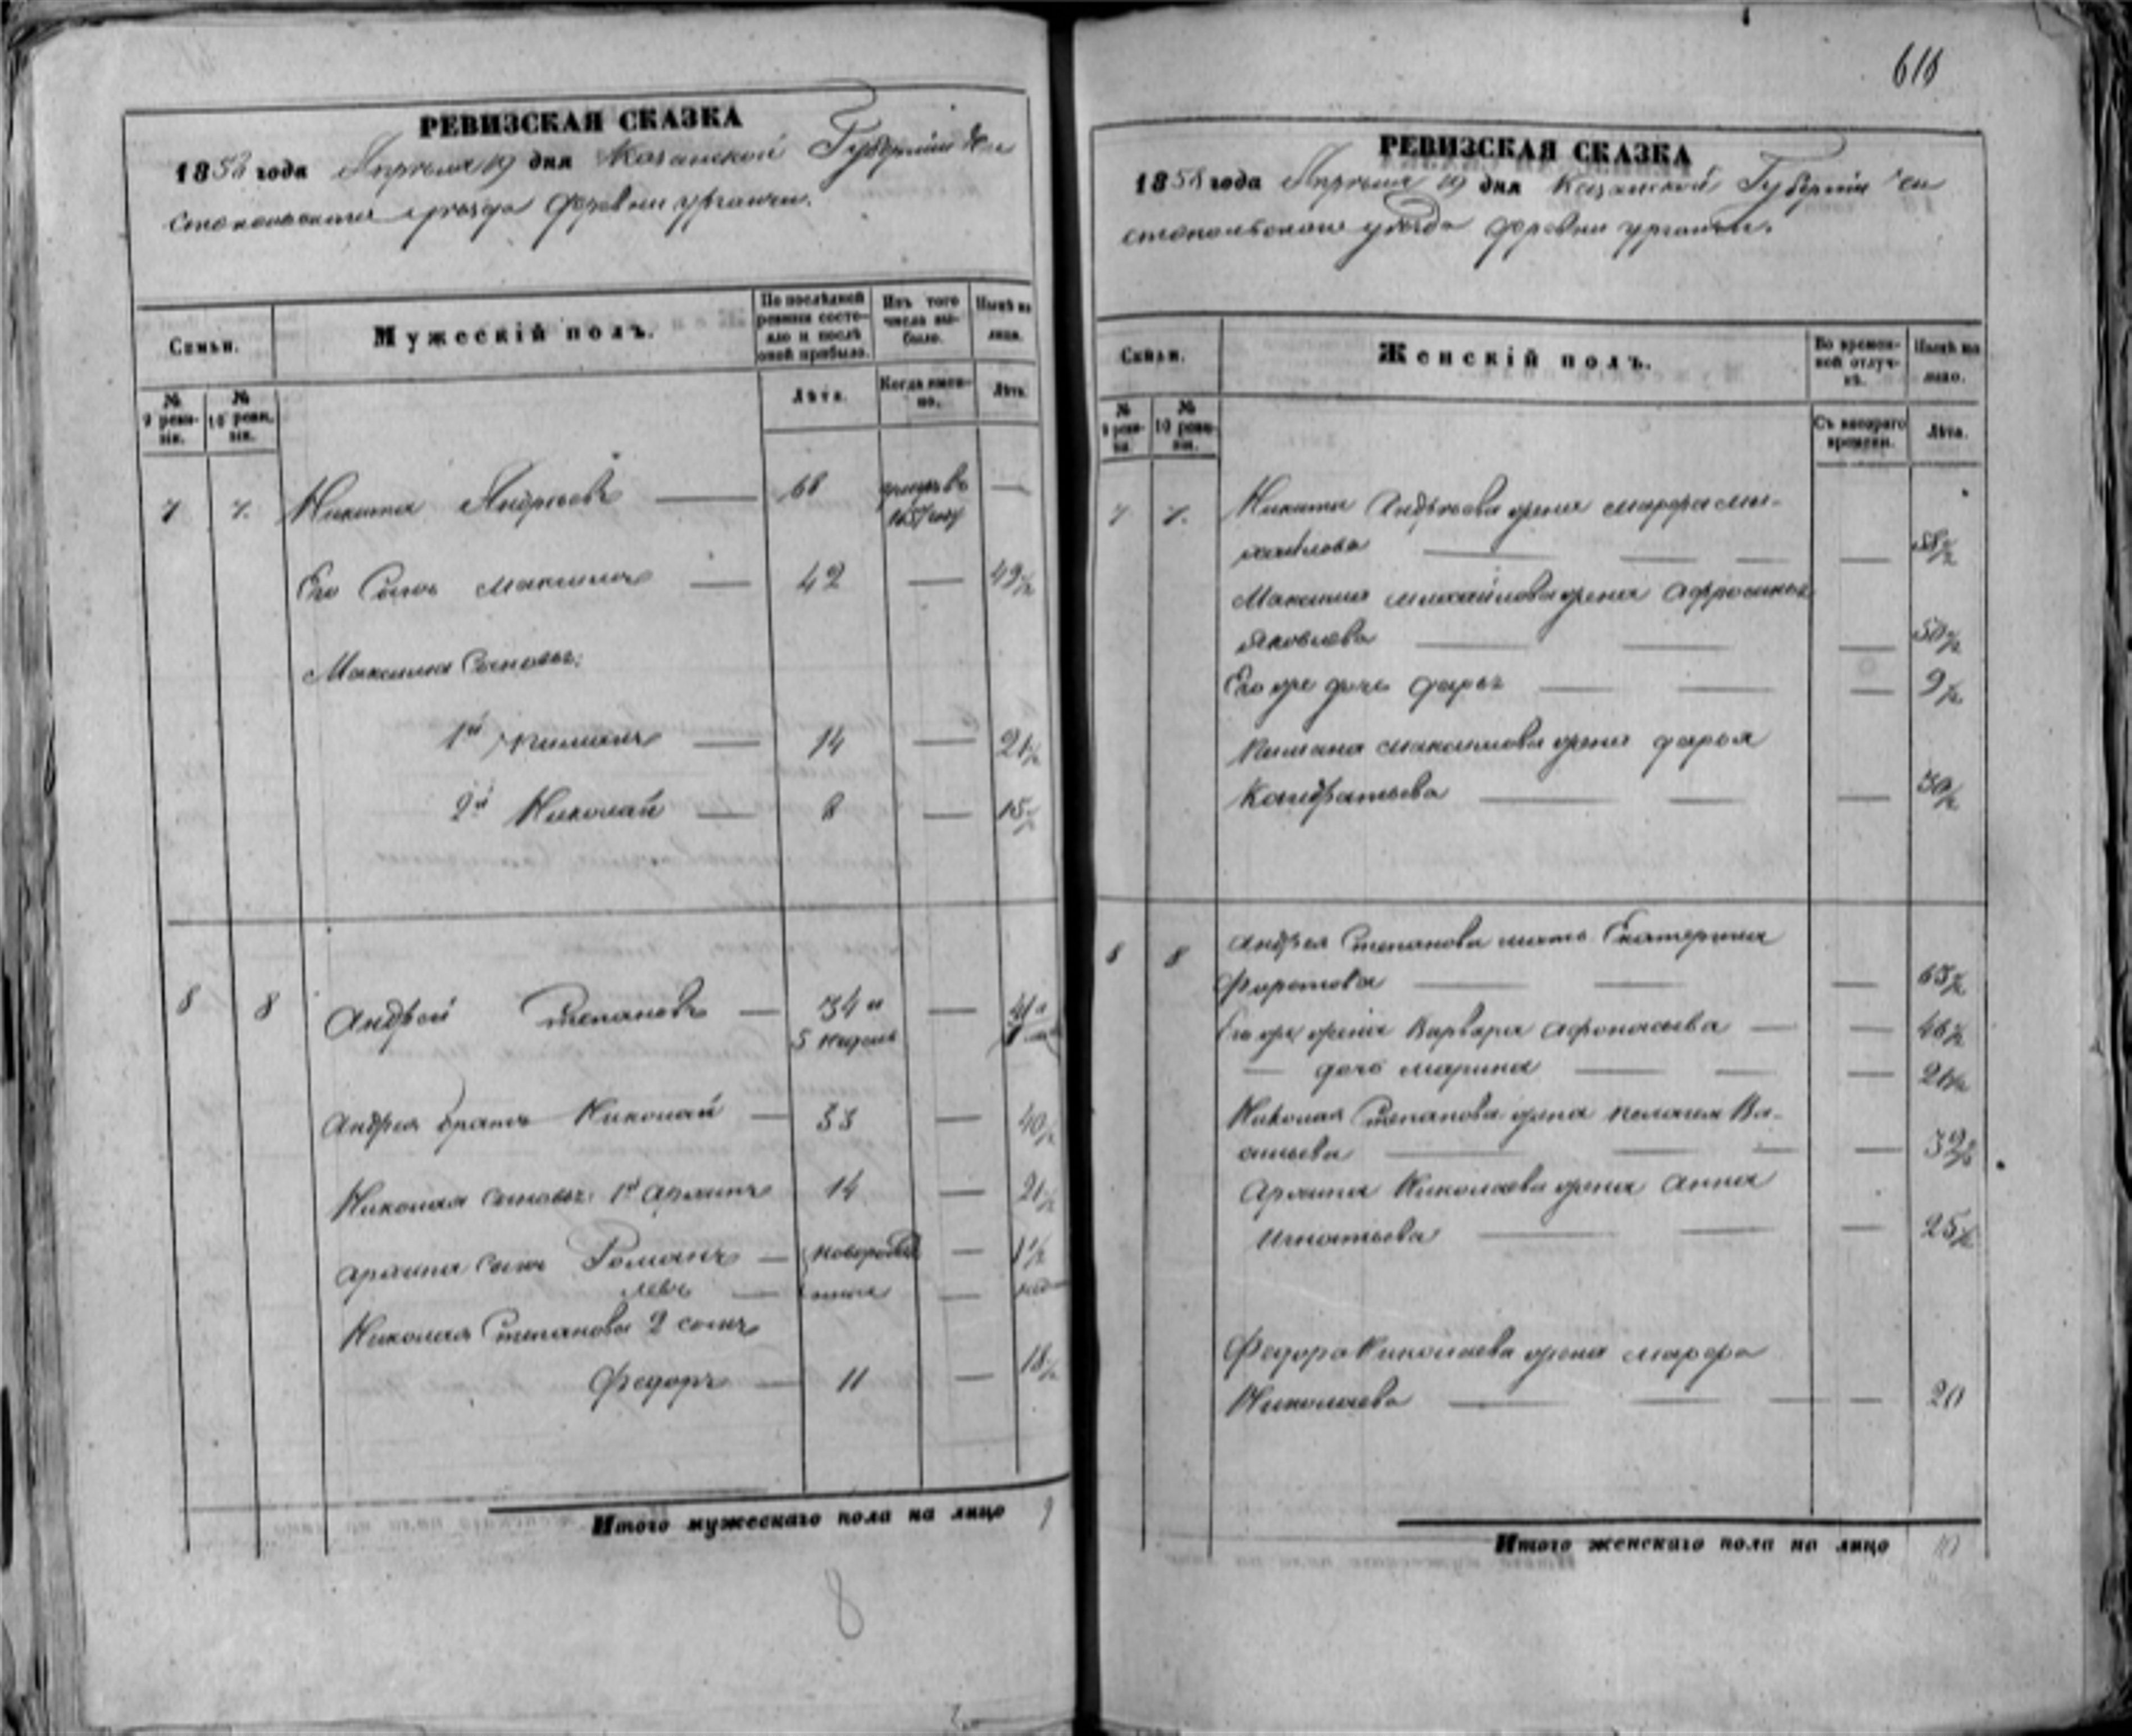 РЕВИЗСКАЯ СКАЗКА
1858 года Апреля 19 дня Казанской Губернии Чи
стопольского уезда деревни Ургатчи.
Семьи.
Мужескій полъ.
По послѣдней ревизіи состояло и послѣ оной прибыло.
Изъ того числа выбыло.
Нынѣ на лицо.
№ 9 ревизіи.
№ 10 ревизіи.
Лѣта.
Когда именно.
Лѣта.
7 7. Никита Андреевъ — 68 —
Его Сынъ Максимъ — 42 — 49½
Максима Сыновья:
1й — 14 — 21½
2й Николай — 8 — 15½
8 8 Андрей Степановъ — 34 и — 41 и
5 недель
Андрея братъ Николай — 33 — 40½
Николая сыновья 1й Архипъ 14 — 21½
Архипа сынъ Романъ — новорожд — 1½
Левъ —
Николая Степанова 2 сынъ
Федоръ — 11 — 18½
Итого мужескаго пола на лицо 9
8
616
РЕВИЗСКАЯ СКАЗКА
1858 года Апреля 19 дня Казанской Губерніи Чи
стопольского уезда деревни Ургатчи.
Семьи.
Женскій полъ.
Во временной отлучкѣ.
Нынѣ на лицо.
№ 9 ревизіи.
№ 10 ревизіи.
Съ котораго времени.
Лѣта.
7 7. Никиты Андреева жена Марфа Ми-
хайлова — — — — 58½
Максима Михайлова жена Афросинья
Яковлева — — — 50½
Его же дочь Дарья — — — 9½
Максимова жена Дарья
Кондратьева — — — 30½
8 8 Андрея Степанова мать Екатерина
— — — 65½
Его же жена Варвара Афонасьева — — 46½
— дочь Марина — — — 21½
Николая Степанова жена Пелагея Ва-
сильева — — — —
Архипа Николаева жена Анна
Игнатьева — — — 25½
Федора Николаева жена Марфа
Николаева — — — — 20
Итого женскаго пола на лицо 10